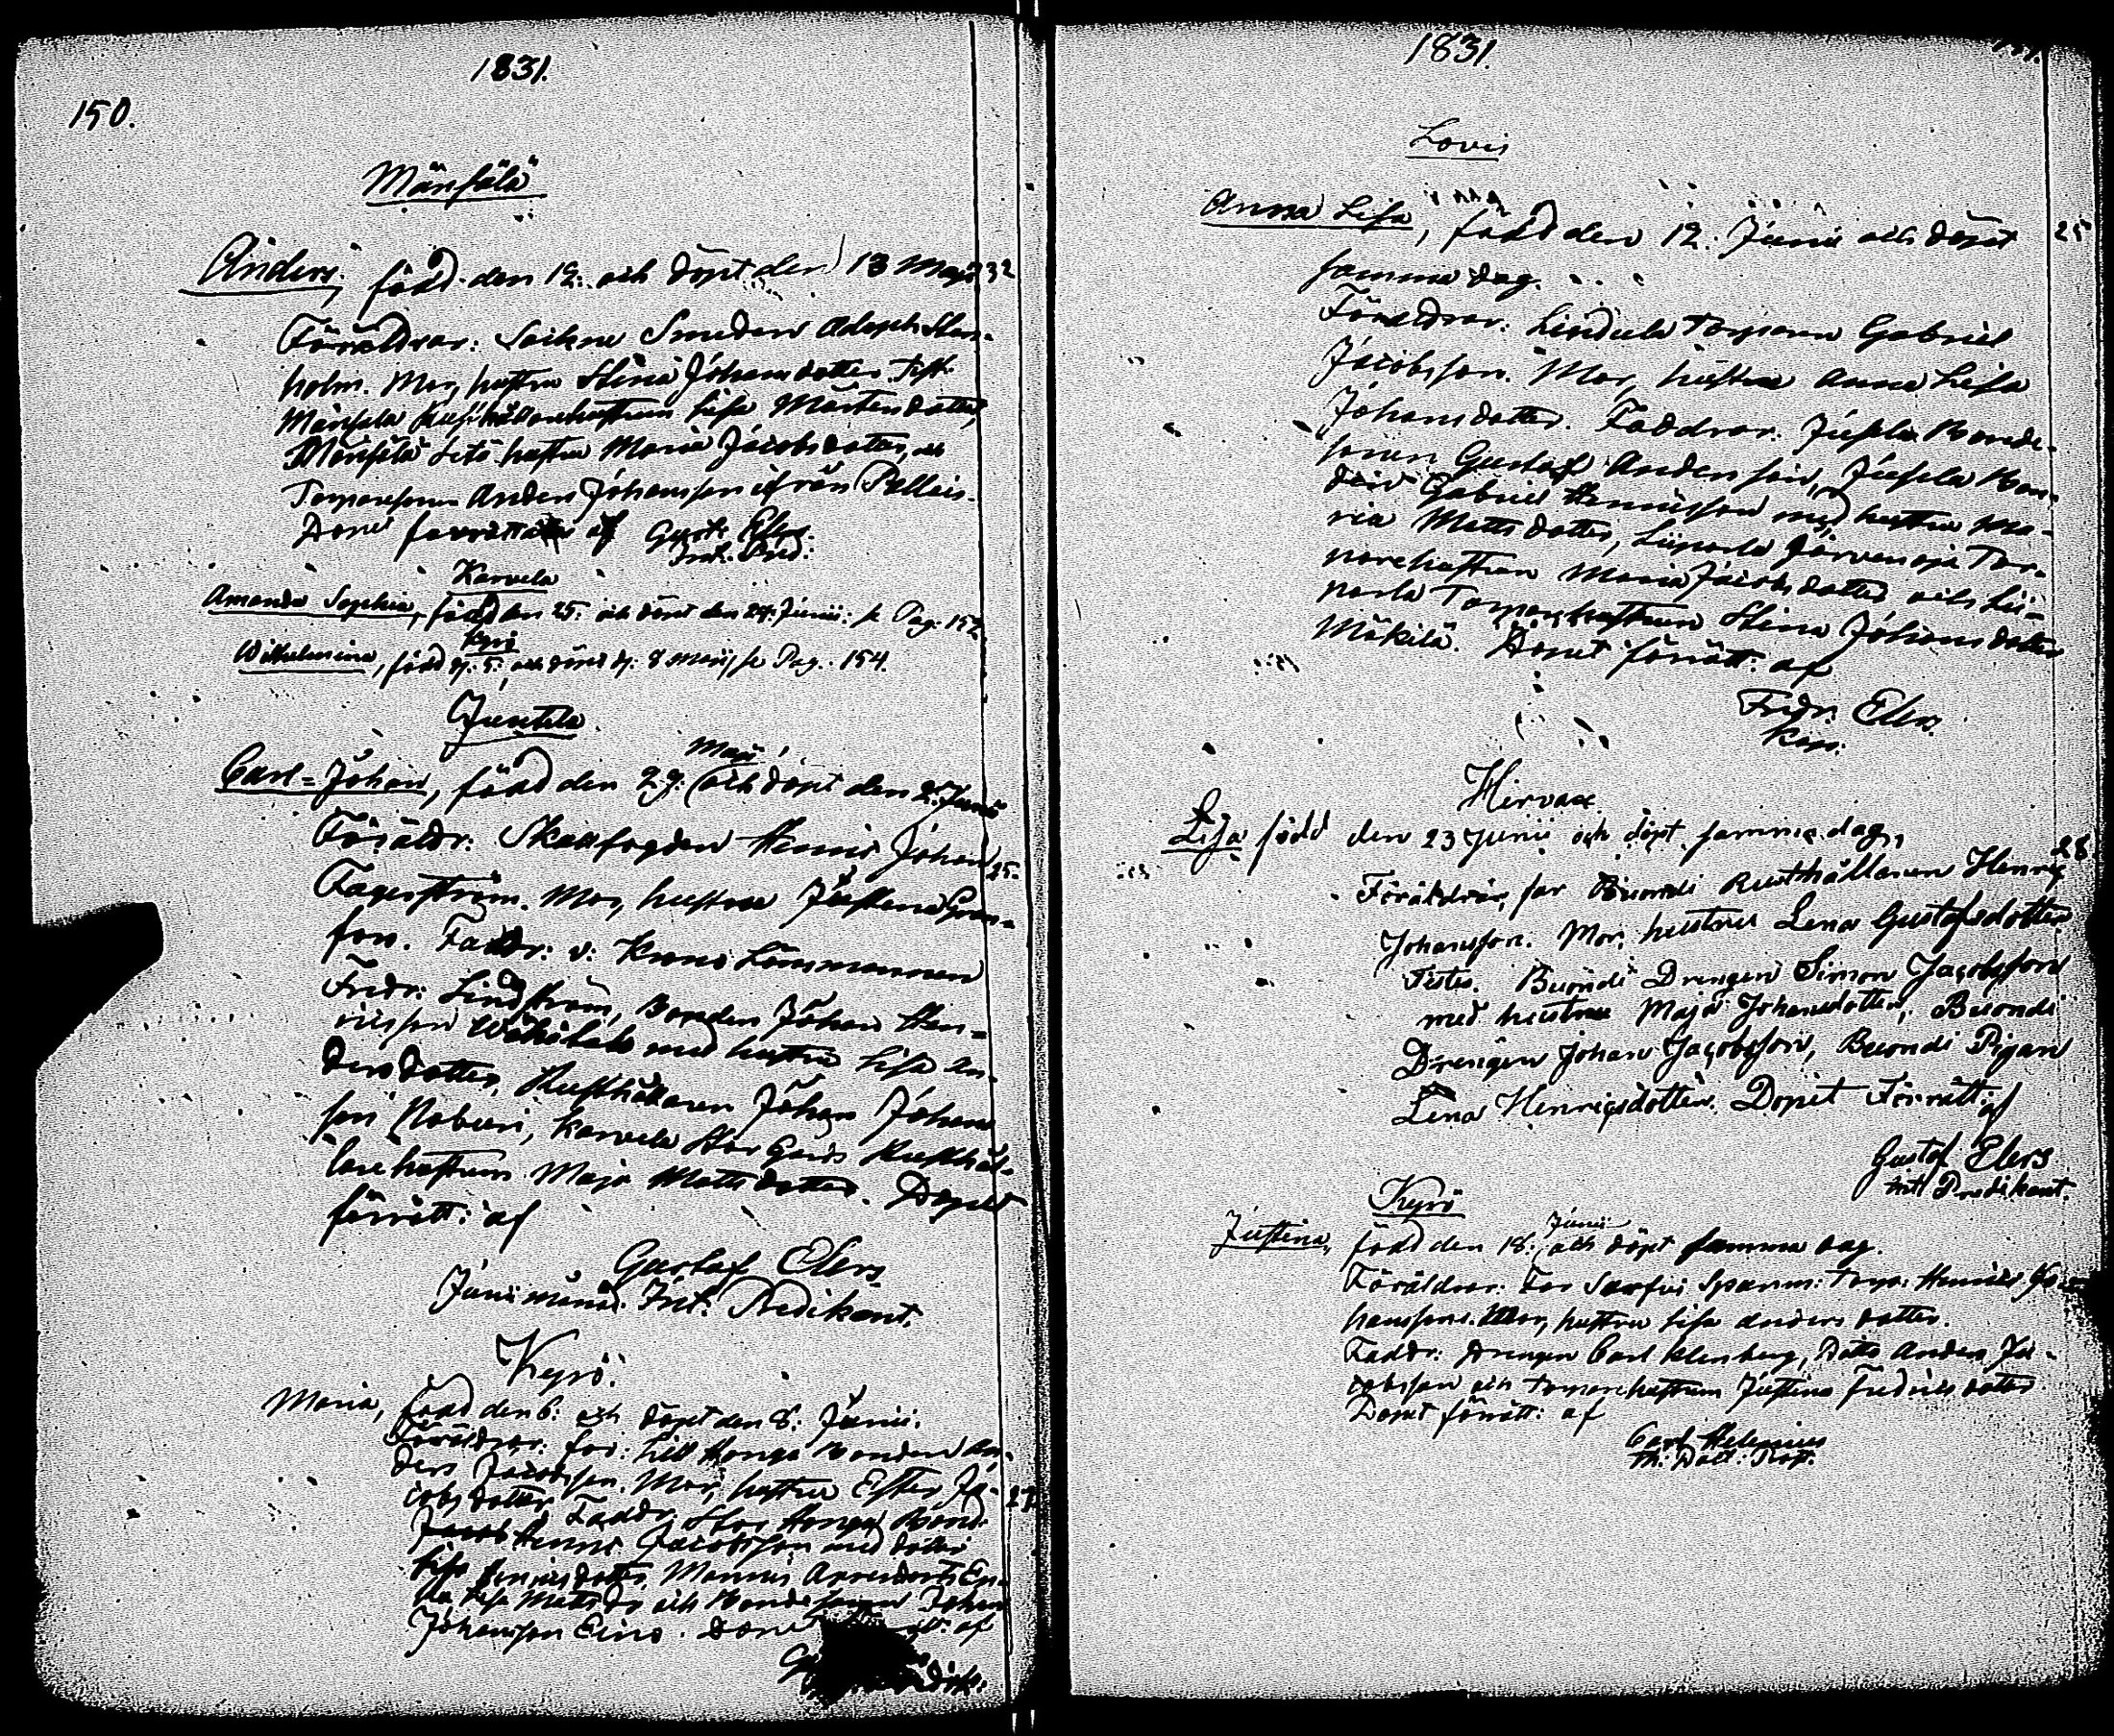 1831.
150.
Mänfälä
Anders, född den 12. och döpt den 13 Maji 32
Föräldrar: Sockne Smeden Adolph Sten-
holm. Mor, hustru Stina Johansdotter. Test:
Mänfälä Rusthållarehustrun Lisa Mårtensdotter,
Mänfälä hustru Maria Jacobsdotter, och
Torparesonen Anders Johansson ifrån Pallais.
Dopet förrättades af Gust. Elers.
Int. Pred:
Karvela
Amanda Sophia, född den 25. och döpt den 27. Junii: se Pag. 152
Kyrö
Wilhelmina, född d. 5. och döpt d. 8 Maij se Pag. 154.
Juntila
Maji
Carl-Johan, född den 29. och döpt den 2. Junii
Föräldr: Skallfogden Henric Johan 25.
Fagerström. Mor, hustru Justina Gran-
fors. Faddr: v. Krono Länsmannen
Fredr: Lindström, Bonden Johan Hen-
ricsson med hustru Lisa An-
dersdotter, Rusthållaren Johan Johans-
son Naburi, Karvela Stor Gårds Rusthål-
larehustrun Maja Mattsdotter. Dopet
förrätt: af
Gustaf Elers
Junii månad. Int: Predikant.
Kyrö.
Maria, född den 6: och döpt den 8: Junii.
Föräldrar: far: Lill Honga Bonden An-
ders Jacobsson. Mor, hustru Ester Ja-
cobsdotter. Faddr, Stor Honga Bond. 27
Jacob Henric Jacobsson med dotter
Lisa Henricsdotter, En-
ka Lisa Matts dr och Bondesonen Johan
Johansson Eino. Dopet af
1831.
Lovis
Anna Lisa, född den 12. Junii och döpt 25
samma dag.
Föräldrar: Lindula Torparen Gabriel
Jacobsson. Mor, hustru Anna Lisa
Johansdotter. Faddrar: Jussila Bonde-
sonen Gustaf Andersson, Jussila Bon-
den Gabriel Henricsson med hustru Ma-
ria Mattsdotter, Liiparla Järvenoja Tor-
parehustrun Maria Jacobsdotter och Lii-
parla Torparehustrun Stina Johansdotter
Mäkilä. Dopet förrätt: af
Fredr. Elers.
Kapp:
Hirvax
Lisa född den 23 Junii och döpt samma dag, 28
Föräldrar, far Buondi Rusthållaren Henrig
Johansson. Mor, hustru Lena Gustafsdotter
Testes. Buondi Drengen Simon Jacobsson
med hustru Maja Johansdotter, Buondi
Drengen Johan Jacobsson, Buondi Pigan
Lena Henrigsdotter. Dopet Förrätt: af
Gustaf Elers
Int Predikant.
Kyrö
Junii
Justina, född den 18. och döpt samma dag.
Föräldrar: Far Sarfvi Torp: Henric Jo-
hansson. Mor, hustru Lisa Andersdotter.
Faddr: Drengen Carl Klenberg, Ditto Anders Ja-
cobsson och Torparehustrun Justina Fredricsdotter
Dopet förrätt: af
Carl Helenius